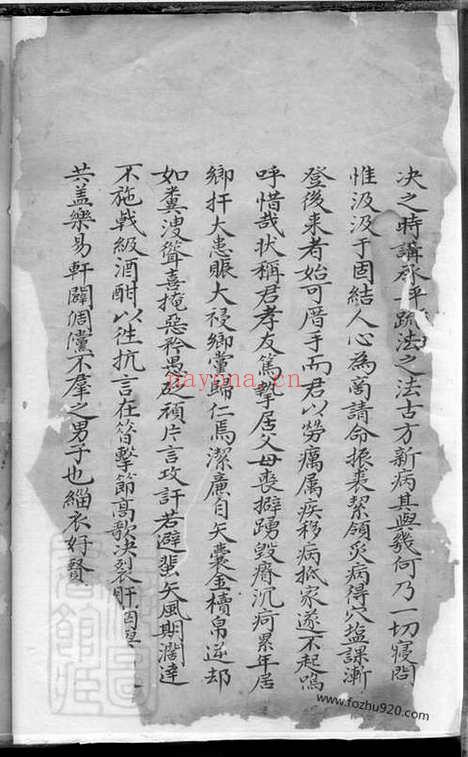 决之時講承平疏法之法古方新病其與幾何乃一切寢閣
惟汲汲于固結人心為閭請命振裘絜領災病得穴塩課漸
登後来者始可厝手而君以勞癘属疾移病抵家遂不起嗚
呼惜哉状稱君孝友篤摯居父母喪擗踴毀瘠沉疴累年居
鄉扞大患賑大祲鄉黨歸仁焉潔廉自矢囊金櫝帛逆却
如糞溲聳喜掩惡矜愚片言攻訐若避蜚矢風期濶達
不施戟級酒酣以徃抗言在昔擊節高歌决裂肝
共盖樂易軒闢倜儻不羣之男子也緇衣好賢
nayona.cn
www.fozhu920.com